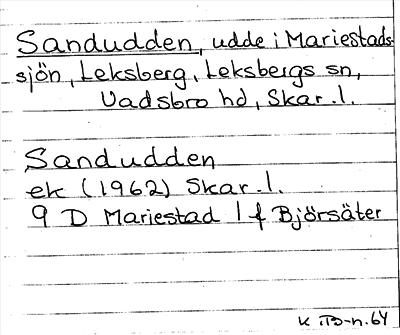 Sandudden, udde i Mariestads-
sjön, Leksberg, Leksbergs sn,
Vadsbro hd, Skar. l.
Sandudden
ek (1962) Skar. l.
9 D Mariestad l f Björsäter